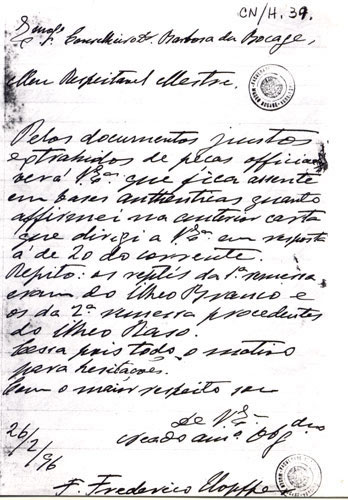 CN/H. 39.
Exmº Sr. Conselheiro Dr. Barbosa du Bocage,
Meu Respeitavel Mestre.
Pelos documentos juntos
extrahidos de peças officiaes
verá V. Exª que fica assente
em bases authenticas quanto
affirmei na anterior carta
que dirigi a V. Exª em resposta
á de 20 do corrente.
Repito: os reptis da 1ª remessa
eram do Ilheo Branco e
os da 2ª remessa procedentes
do Ilheo Raso.
Cessa pois todo o motivo
para hesitações.
Com o maior respeito sou
de V. Exª
26/2/96
F. Frederico Hopffer